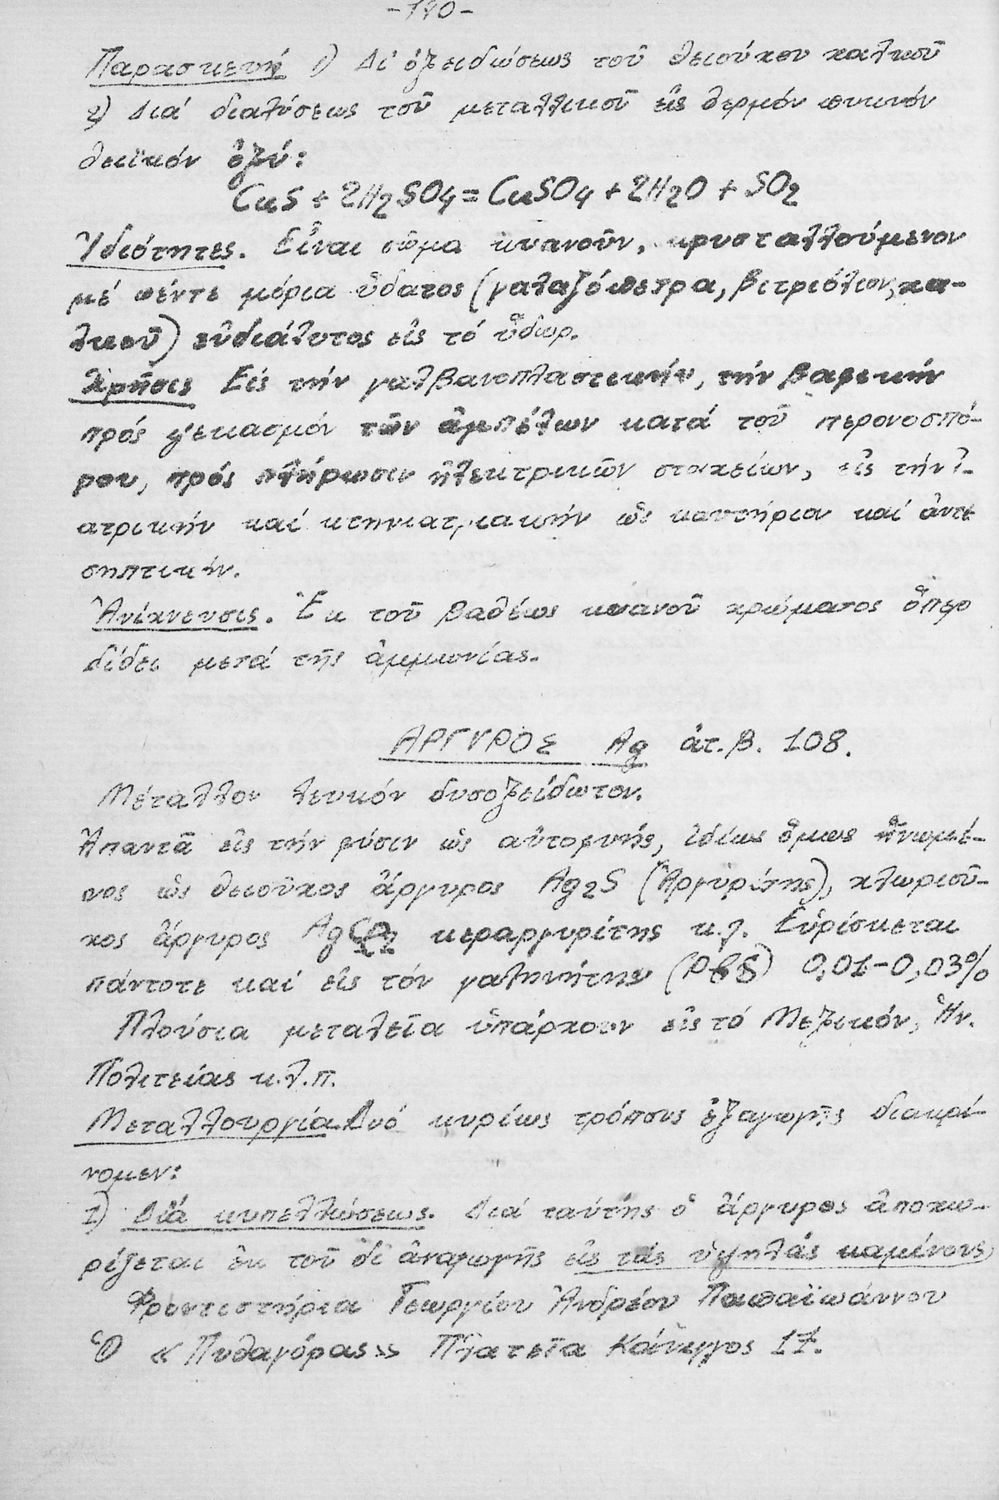 -190-
Παρασκευή 1) Δι' ὀξειδώσεως τοῦ θειούχου χαλκοῦ
2) Διά διαλύσεως τοῦ μεταλλικοῦ εἰς θερμόν πυκνόν
θειϊκόν ὀξύ:
CuS + 2H2SO4 = CuSO4 + 2H2O + SO2
Ἰδιότητες. Εἶναι σῶμα κυανοῦν, κρυσταλλούμενον
μέ πέντε μόρια ὕδατος (γαλαζόπετρα, βιτριόλιον, χα-
λκοῦ) εὐδιάλυτος εἰς τό ὕδωρ.
Χρῆσις Εἰς τήν γαλβανοπλαστικήν, τήν βαφικήν
πρός ψεκασμόν τῶν ἀμπέλων κατά τοῦ περονοσπό-
ρου, πρός πλήρωσιν ἠλεκτρικῶν στοιχείων, εἰς τήν ἰ-
ατρικήν καί κτηνιατριακήν ὡς καυτήριον καί ἀντι
σηπτικήν.
Ἀνίχνευσις. Ἐκ τοῦ βαθέως κυανοῦ χρώματος ὅπερ
δίδει μετά τῆς ἀμμωνίας.
ΑΡΓΥΡΟΣ Ag ἀτ. β. 108.
Μέταλλον λευκόν δυσοξείδωτον.
Ἀπαντᾶ εἰς τήν φύσιν ὡς αὐτοφυής, ἰδίως ὅμως ἡνωμέ-
νος ὡς θειοῦχος ἄργυρος Ag2S (Ἀργυρίτης), χλωριοῦ-
χος ἄργυρος κεραργυρίτης κ.λ. Εὑρίσκεται
πάντοτε καί εἰς τόν γαληνήτην (PbS) 0,01-0,03%
Πλούσια μεταλεῖα ὑπάρχουν εἰς τό Μεξικόν, Ἡν.
Πολιτείας κ.λ.π.
Μεταλλουργία Δυό κυρίως τρόπους ἐξαγωγῆς διακρί-
νομεν:
1) Διά κυπελλώσεως. Διά ταύτης ὁ ἄργυρος ἀποχω-
ρίζεται ἐκ τοῦ δι' ἀναγωγῆς εἰς τάς ὑψηλάς καμίνους,
Φροντιστήρια Γεωργίου Ἀνδρέου Παπαϊωάννου
Ὁ «Πυθαγόρας» Πλατεῖα Κάνιγγος 17.